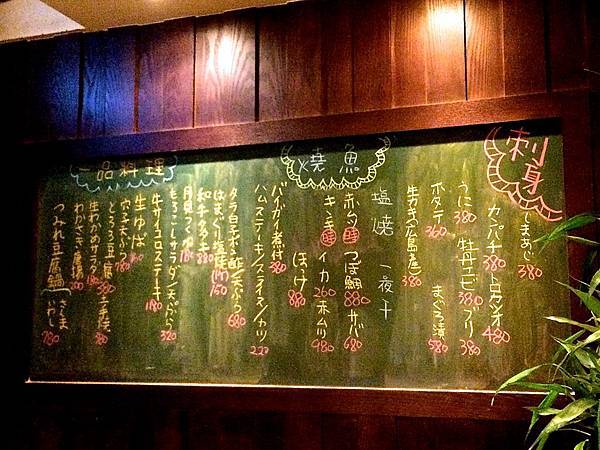 刺身
しまあじ 380
カンパチ 380 トロカツオ 480
うに 380 牡丹エビ 380 ブリ 380
ホタテ 360 まぐろ漬 580
生ガキ(広島産) 380
焼魚
塩焼 一夜干
赤ムツ 時 つぼ鯛 880 サバ 680
キンキ 時 イカ 260 赤ムツ 980
ほっけ 880
バイガイ煮付 380
ハムステーキ/スライス/カツ 220
一品料理
タラ白子ポン酢/天ぷら 680
はまぐり塩焼
和牛タタキ 880
月見つくね 180
もろっこしサラダ/天ぷら 320
牛サイコロステーキ 1180
生ゆば 780
穴子天ぷら 780
とろろ豆腐 380
生わかめサラダ 380
わかさぎ唐揚
つみれ豆腐鍋 さんま いわし 780